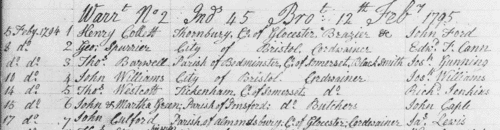 Warrt. No 2 Ind 45 Brot. 12th Feby 1795
5 Feby. 1794 1 Henry Collett Thornbury, C. of Glocester Brazier & John Ford
8 do. 2 Geo. Spurrier City of Bristol Cordwainer Edwd. T. Cann
do. do. 3 Thos. Barwell Parish of Bedminster, C. of Somerset, Black Smith Jos. Gunning
10 do. 4 John Williams City of Bristol Cordwainer Jos. Williams
14 do. 5 Thos. Westcott Tickenham, C. of Somerset do. Richd. Jenkins
15 do. 6 John & Martha Green, Parish of do. Butchers John Caple
17 do. 7 John Parish of Almondsbury, C. of Glocester, Cordwainer Jas. Lewis